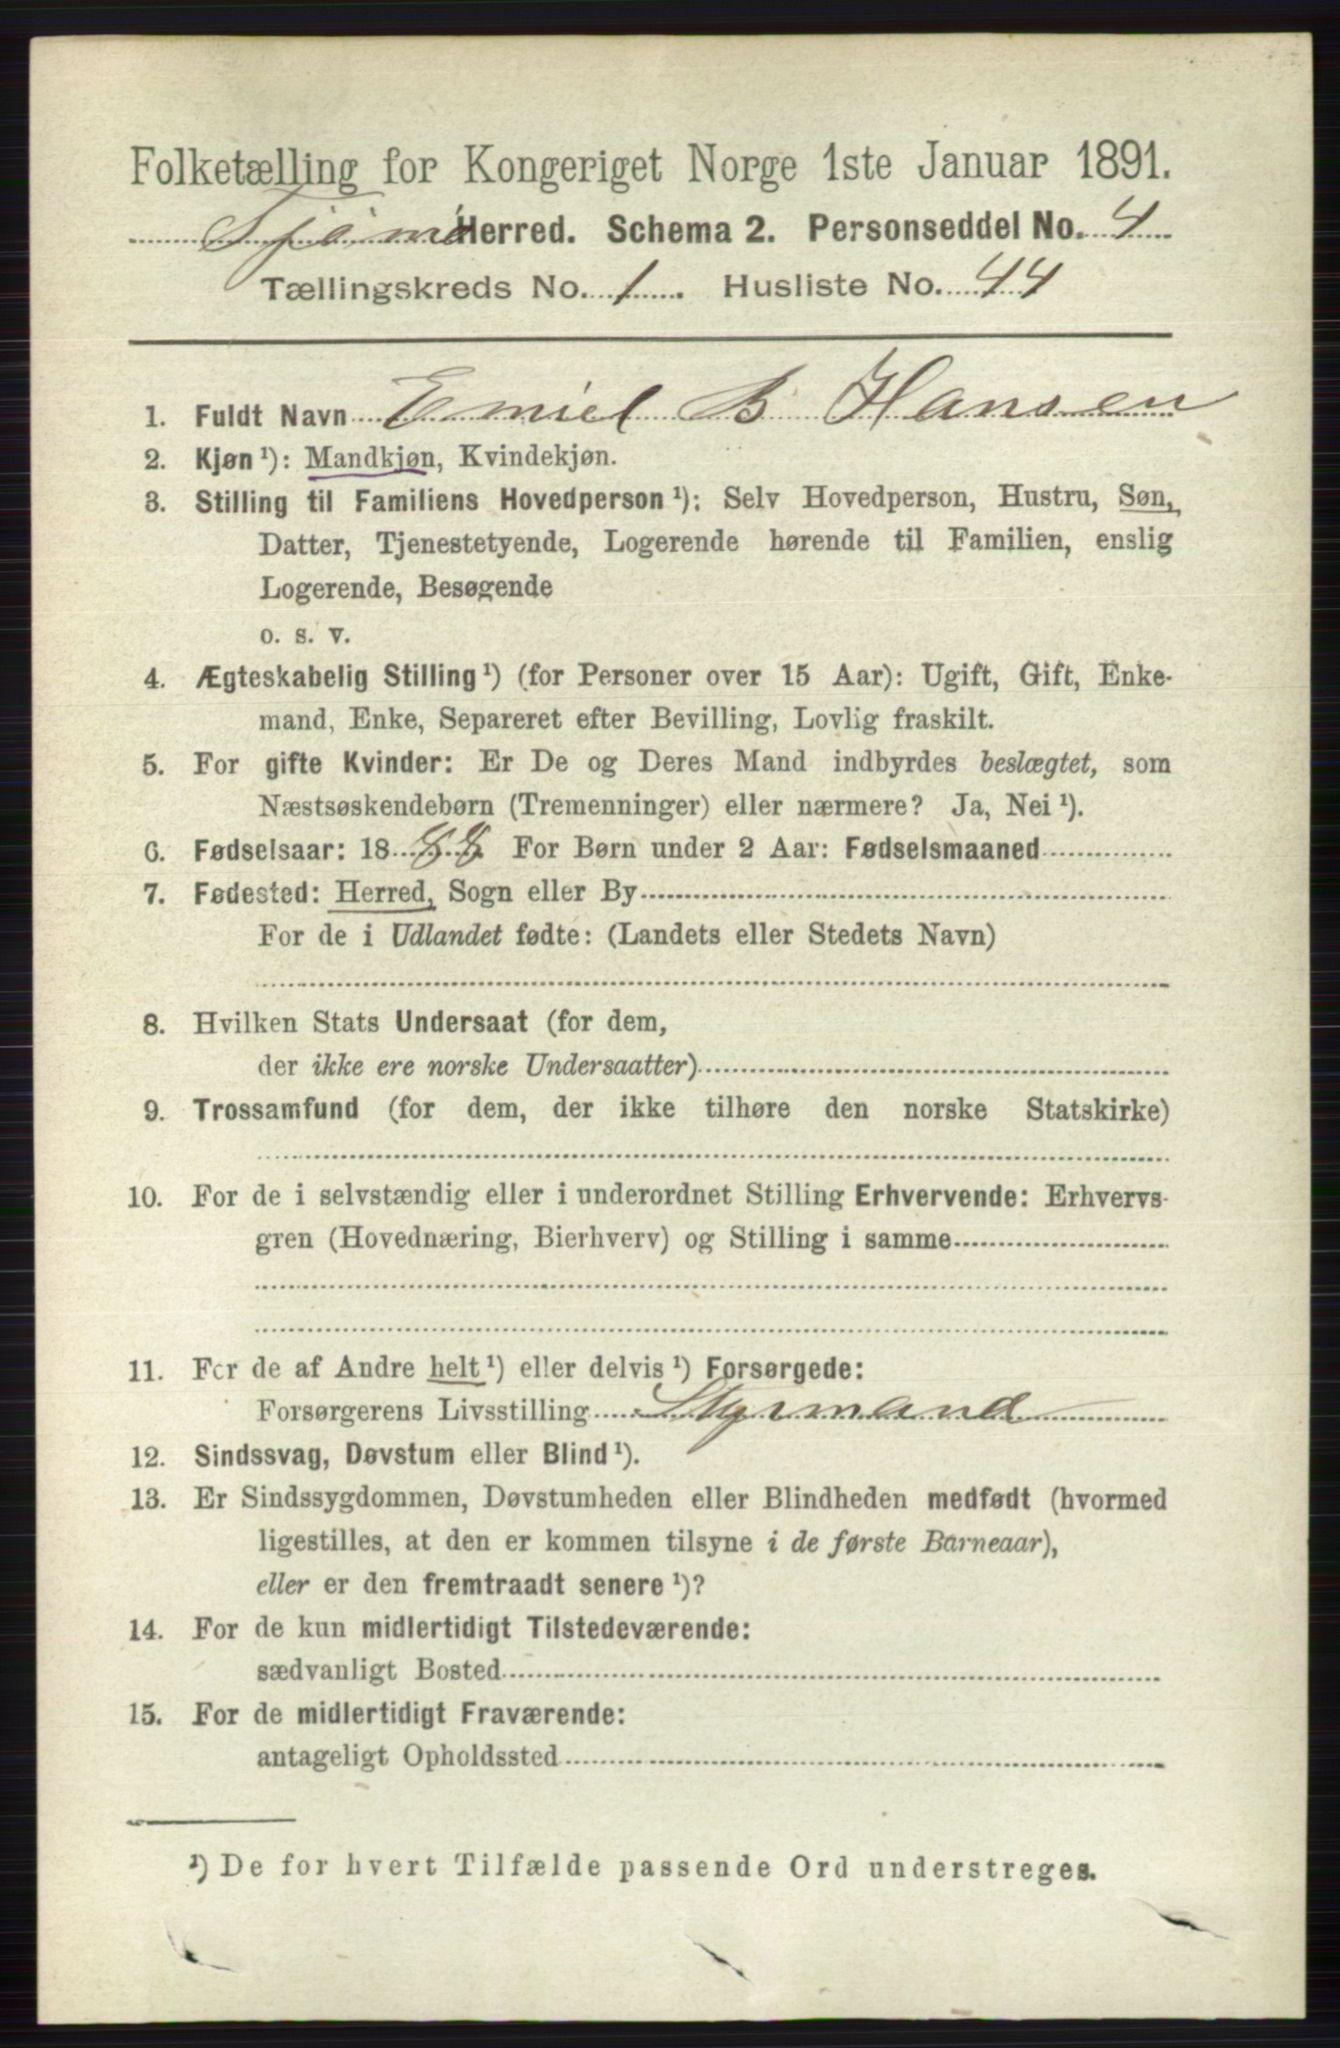 Folketælling for Kongeriget Norge 1ste Januar 1891.
Tjømø Herred. Schema 2. Personseddel No. 4
Tællingskreds No. 1. Husliste No. 44
1. Fuldt Navn Emiel B Hansen
2. Kjøn ¹): Mandkjøn, Kvindekjøn.
3. Stilling til Familiens Hovedperson ¹): Selv Hovedperson, Hustru, Søn,
Datter, Tjenestetyende, Logerende hørende til Familien, enslig
Logerende, Besøgende
o. s. v.
4. Ægteskabelig Stilling ¹) (for Personer over 15 Aar): Ugift, Gift, Enke-
mand, Enke, Separeret efter Bevilling, Lovlig fraskilt.
5. For gifte Kvinder: Er De og Deres Mand indbyrdes beslægtet, som
Næstsøskendebørn (Tremenninger) eller nærmere? Ja, Nei ¹).
6. Fødselsaar: 1888. For Børn under 2 Aar: Fødselsmaaned
7. Fødested: Herred, Sogn eller By
For de i Udlandet fødte: (Landets eller Stedets Navn)
8. Hvilken Stats Undersaat (for dem,
der ikke ere norske Undersaatter)
9. Trossamfund (for dem, der ikke tilhøre den norske Statskirke)
10. For de i selvstændig eller i underordnet Stilling Erhvervende: Erhvervs-
gren (Hovednæring, Bierhverv) og Stilling i samme
11. For de af Andre helt ¹) eller delvis ¹) Forsørgede:
Forsørgerens Livsstilling Styrmand
12. Sindssvag, Døvstum eller Blind ¹).
13. Er Sindssygdommen, Døvstumheden eller Blindheden medfødt (hvormed
ligestilles, at den er kommen tilsyne i de første Barneaar),
eller er den fremtraadt senere ¹)?
14. For de kun midlertidigt Tilstedeværende:
sædvanligt Bosted
15. For de midlertidigt Fraværende:
antageligt Opholdssted
¹) De for hvert Tilfælde passende Ord understreges.